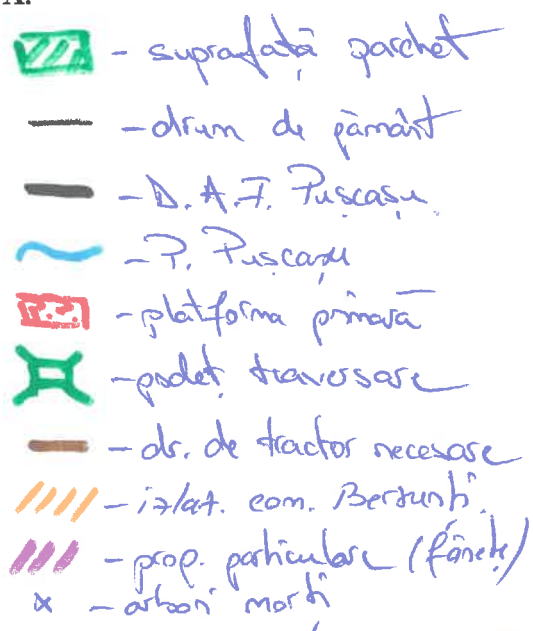 - suprafață parchet
- drum de pământ
- D.A.F. Pușcașu
- P. Pușcașu
- platforma primară
- podeț traversare
- dr. de tractor necesare
- izlaz. com. Berzunți.
- prop. particulare (fânețe)
x - arbori morți